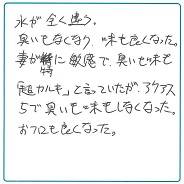 水が全く違う。
臭いもなくなり、味も良くなった。
妻が特に敏感で、臭いも味も
「超カルキ」と言っていたが、アクアス
5で臭いも味もしなくなった。
おフロも良くなった。